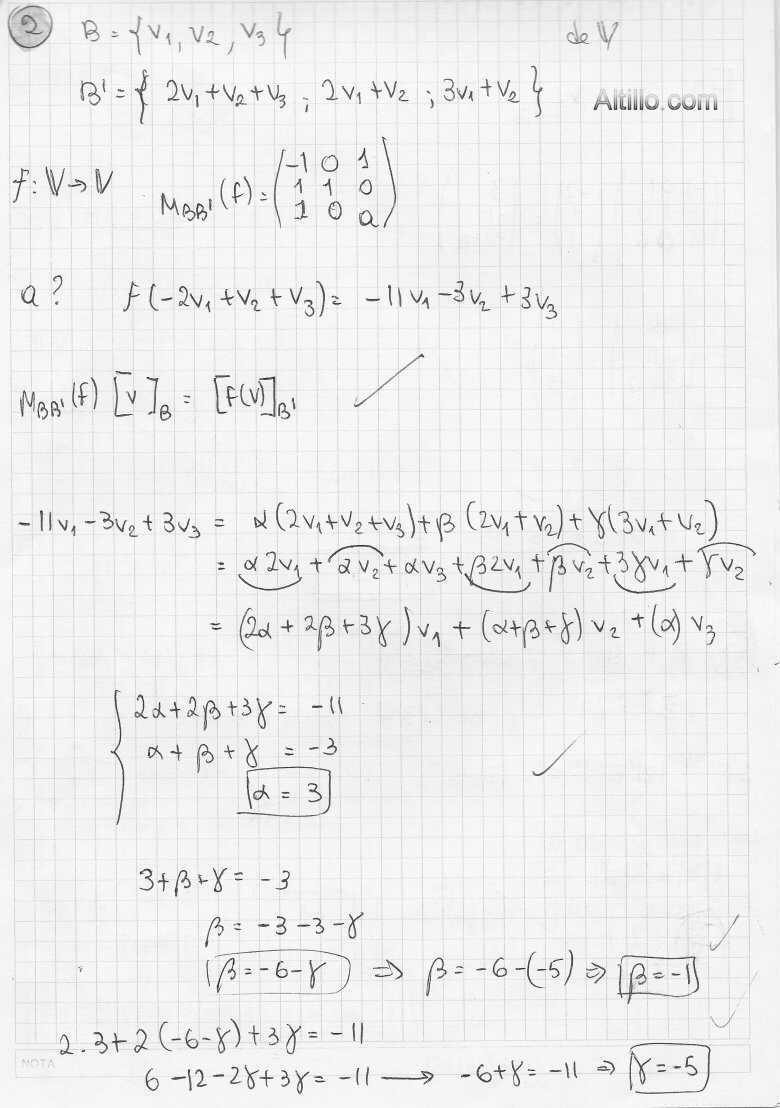 2 B = {v1, v2, v3} de V
B' = { 2v1+v2+v3 ; 2v1+v2 ; 3v1+v2 }
Altillo.com
f: V→V M_BB'(f) = (-1 0 1
1 1 0
1 0 a)
a? f(-2v1+v2+v3) = -11v1-3v2+3v3
M_BB'(f) [v]_B = [f(v)]_B' ✓
-11v1-3v2+3v3 = α(2v1+v2+v3)+β(2v1+v2)+γ(3v1+v2)
= α2v1+αv2+αv3+β2v1+βv2+3γv1+γv2
= (2α+2β+3γ)v1+(α+β+γ)v2+(α)v3
{ 2α+2β+3γ = -11
α+β+γ = -3 ✓
α = 3
3+β+γ = -3
β = -3-3-γ ✓
β=-6-γ ⇒ β = -6-(-5) ⇒ β=-1
✓
2.3+2(-6-γ)+3γ = -11
NOTA
6-12-2γ+3γ = -11 → -6+γ = -11 ⇒ γ=-5